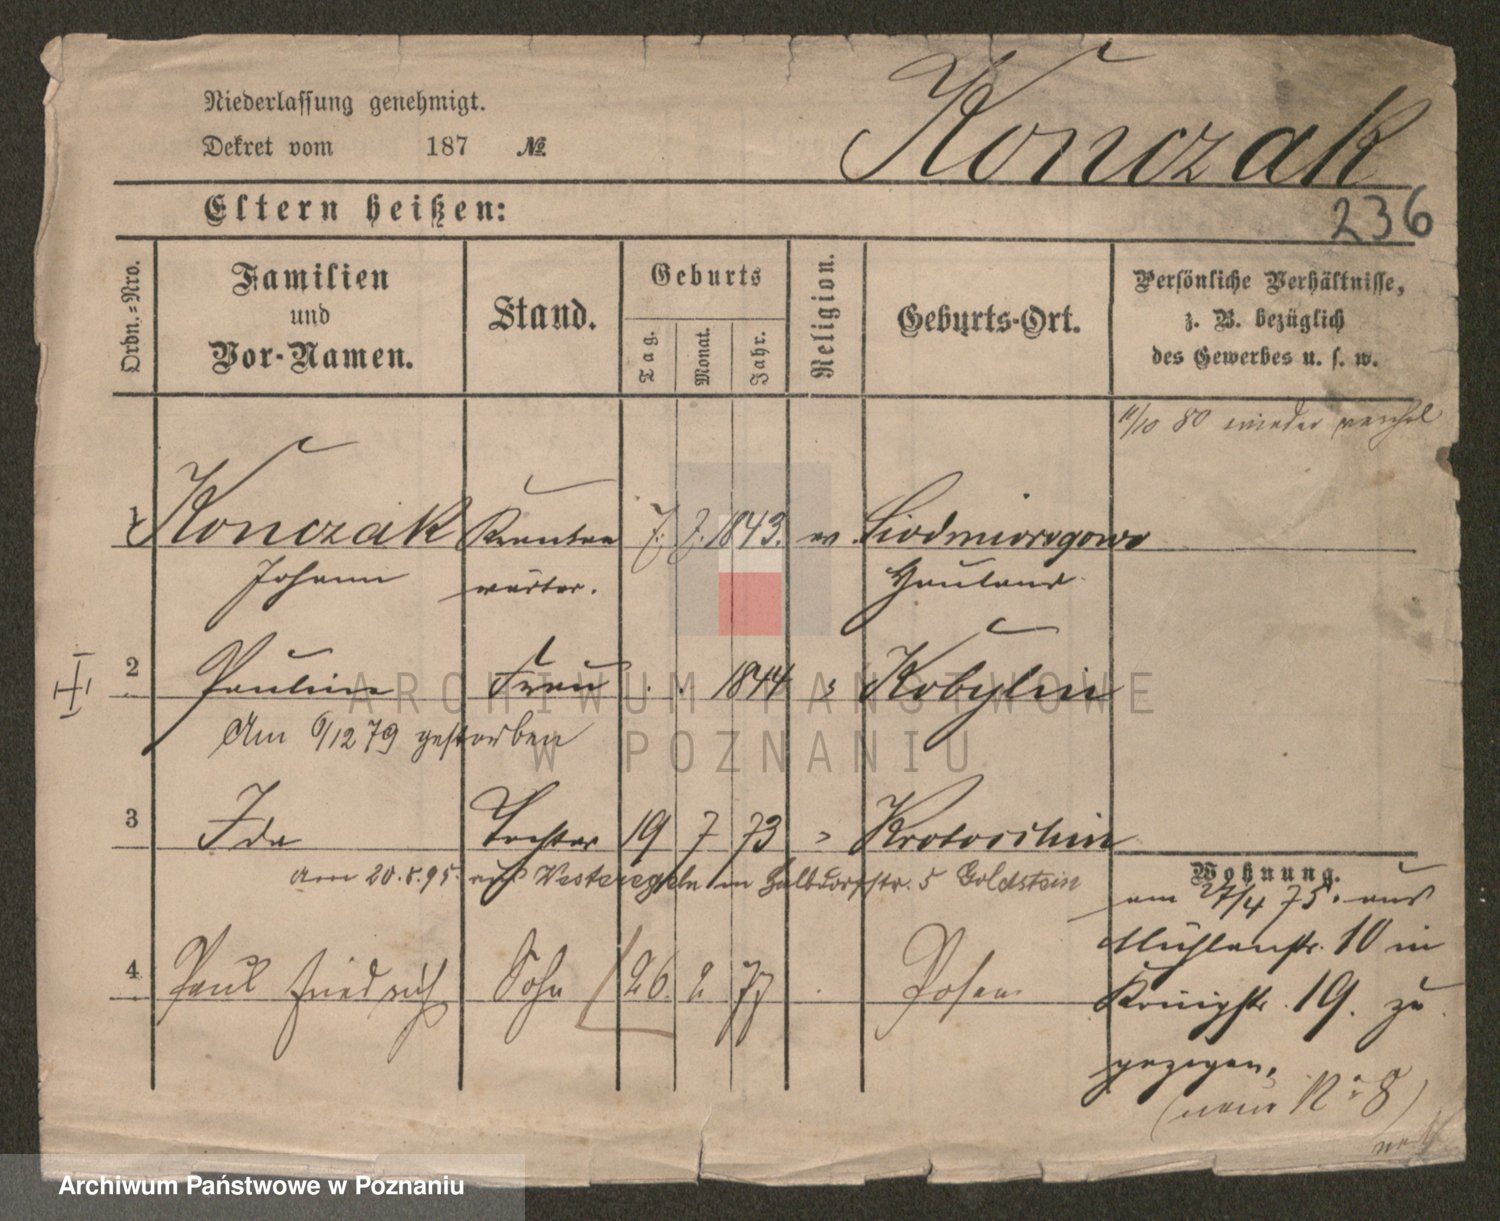 Niederlassung genehmigt.
Dekret vom 187 №
Konczak
236
Eltern heißen:
Ordn.-Nro.
Familien
und
Vor-Namen.
Stand.
Geburts
Tag.
Monat.
Jahr.
Religion.
Geburts-Ort.
Persönliche Verhältnisse,
z. B. bezüglich
des Gewerbes u. s. w.
11/10 80 wieder
1 Konczak Kranken 7. 7. 1843. ev.
Johann wärter. Hauland
2 Pauline Frau . . 1844 " Kobylin
Am 6/12 79 gestorben
3 Ida Tochter 19 7 73 " Krotoschin
am 20.5.95. auf Westeregeln in 5 Goldstein
Wohnung.
am 27/4 75. aus
Mühlenstr. 10 in
Königstr. 19. zu
gezogen.
(neue No 8)
4 Paul Friedrich Sohn 26. 2 77 . Posen
ARCHIWUM PAŃSTWOWE
W POZNANIU
Archiwum Państwowe w Poznaniu